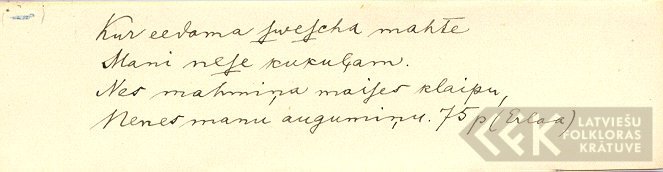 Kur eedama swescha mahte
Mani nese kukuļam.
Nes mahmiņa maises klaipu,
Nenes manu augumiņu. 75 p (Erlaa)
LATVIEŠU
FOLKLORAS
KRĀTUVE